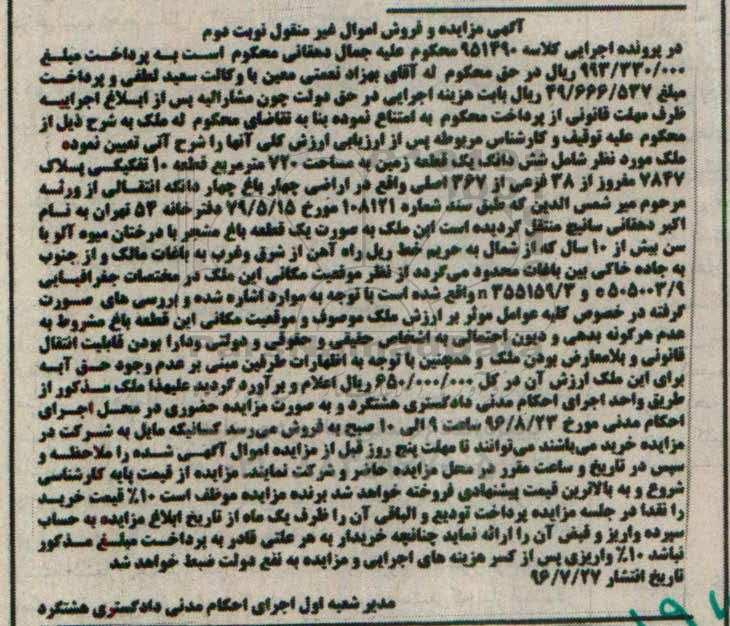 آگهی مزایده و فروش اموال غیر منقول نوبت دوم
در پرونده اجرایی کلاسه ۹۵۱۴۹۰ محکوم علیه جمال دهقانی محکوم است به پرداخت مبلغ
۹۹۳/۳۳۰/۰۰۰ ریال در حق محکوم له آقای بهزاد نعمتی معین با وکالت سعید لطفی و پرداخت
مبلغ ۴۹/۶۶۶/۵۳۷ ریال بابت هزینه اجرایی در حق دولت چون مشارالیه پس از ابلاغ اجراییه
ظرف مهلت قانونی از پرداخت محکوم به امتناع نموده بنا به تقاضای محکوم له ملک به شرح ذیل از
محکوم علیه توقیف و کارشناس مربوطه پس از ارزیابی ارزش کلی آنها را شرح آتی تعیین نموده
ملک مورد نظر شامل شش دانگ یک قطعه زمین به مساحت ۷۲۰ مترمربع قطعه ۱۰ تفکیکی پسلاک
۷۸۴۷ مفروز از ۳۸ فرعی از ۳۶۷ اصلی واقع در اراضی چهار باغ چهار دانگه انتقالی از ورثه
مرحوم میر شمس الدین که طبق سند شماره ۱۰۸۱۲۱ مورخ ۷۹/۵/۱۵ دفترخانه ۵۴ تهران به نام
اکبر دهقانی سانیج منتقل گردیده است این ملک به صورت یک قطعه باغ مشجر با درختان میوه آلو با
سن بیش از ۱۰ سال که از شمال به حریم خط ریل راه آهن از شرق وغرب به باغات مالک و از جنوب
به جاده خاکی بین باغات محدود می‌گردد از نظر موقعیت مکانی این ملک در مختصات جغرافیایی
e ۵۰۵۰۰۳/۹ و n ۳۵۵۱۵۹/۳ واقع شده است با توجه به موارد اشاره شده و بررسی های صورت
گرفته در خصوص کلیه عوامل موثر بر ارزش ملک موصوف و موقعیت مکانی این قطعه باغ مشروط به
عدم هرگونه بدهی و دیون احتمالی به اشخاص حقیقی و حقوقی و دولتی ودارا بودن قابلیت انتقال
قانونی و بلامعارض بودن ملک و همچنین با توجه به اظهارات طرفین مبنی بر عدم وجود حق آبه
برای این ملک ارزش آن در کل ۶۵۰/۰۰۰/۰۰۰ ریال اعلام و برآورد گردید علیهذا ملک مذکور از
طریق واحد اجرای احکام مدنی دادگستری هشتگرد و به صورت مزایده حضوری در محل اجرای
احکام مدنی مورخ ۹۶/۸/۲۳ ساعت ۹ الی ۱۰ صبح به فروش می‌رسد کسانیکه مایل به شرکت در
مزایده خرید می‌باشند می‌توانند تا مهلت پنج روز قبل از مزایده اموال آگهی شده را ملاحظه و
سپس در تاریخ و ساعت مقرر در محل مزایده حاضر و شرکت نمایند. مزایده از قیمت پایه کارشناسی
شروع و به بالاترین قیمت پیشنهادی فروخته خواهد شد برنده مزایده موظف است ۱۰٪ قیمت خرید
را نقدا در جلسه مزایده پرداخت تودیع و الباقی آن را ظرف یک ماه از تاریخ ابلاغ مزایده به حساب
سپرده واریز و قبض آن را ارائه نماید چنانچه خریدار به هر علتی قادر به پرداخت مبلغ مذکور
نباشد ۱۰٪ واریزی پس از کسر هزینه های اجرایی و مزایده به نفع دولت ضبط خواهد شد
تاریخ انتشار ۹۶/۷/۲۷
مدیر شعبه اول اجرای احکام مدنی دادگستری هشتگرد